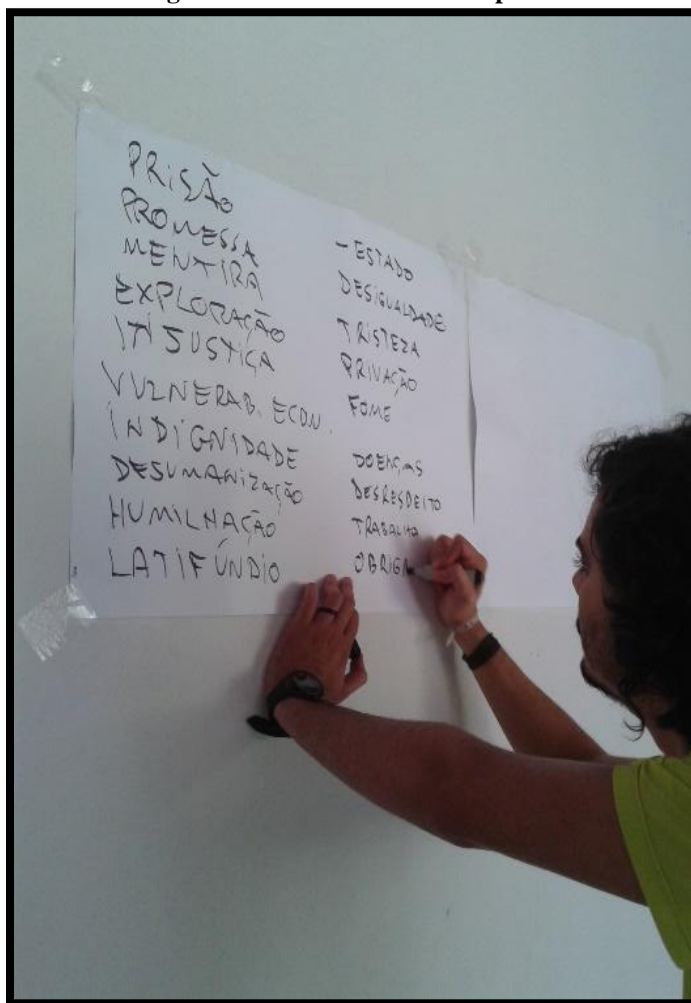 PRISÃO
PROMESSA
MENTIRA
EXPLORAÇÃO
INJUSTIÇA
VULNERAB. ECON.
INDIGNIDADE
DESUMANIZAÇÃO
HUMILHAÇÃO
LATIFÚNDIO
- ESTADO
DESIGUALDADE
TRISTEZA
PRIVAÇÃO
FOME
DOENÇAS
DESRESPEITO
TRABALHO
OBRIGA